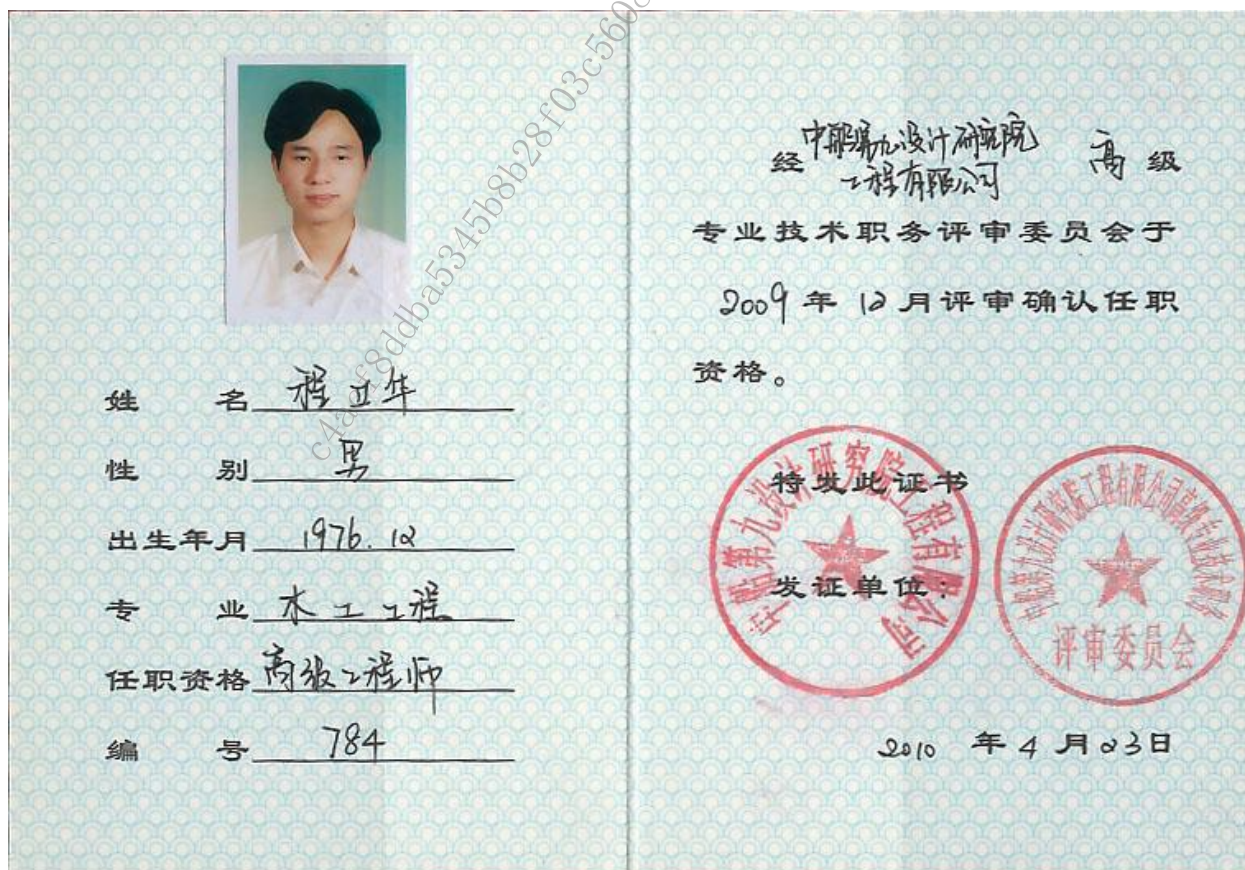 姓名 程卫华
性别 男
出生年月 1976.12
专业 水工工程
任职资格 高级工程师
编号 784
经 中船第九设计研究院工程有限公司 高 级
专业技术职务评审委员会于
2009 年 12 月评审确认任职
资格。
特发此证书
发证单位:
中船第九设计研究院工程有限公司
中船第九设计研究院工程有限公司高级专业技术职务
评审委员会
2010 年 4 月 23 日